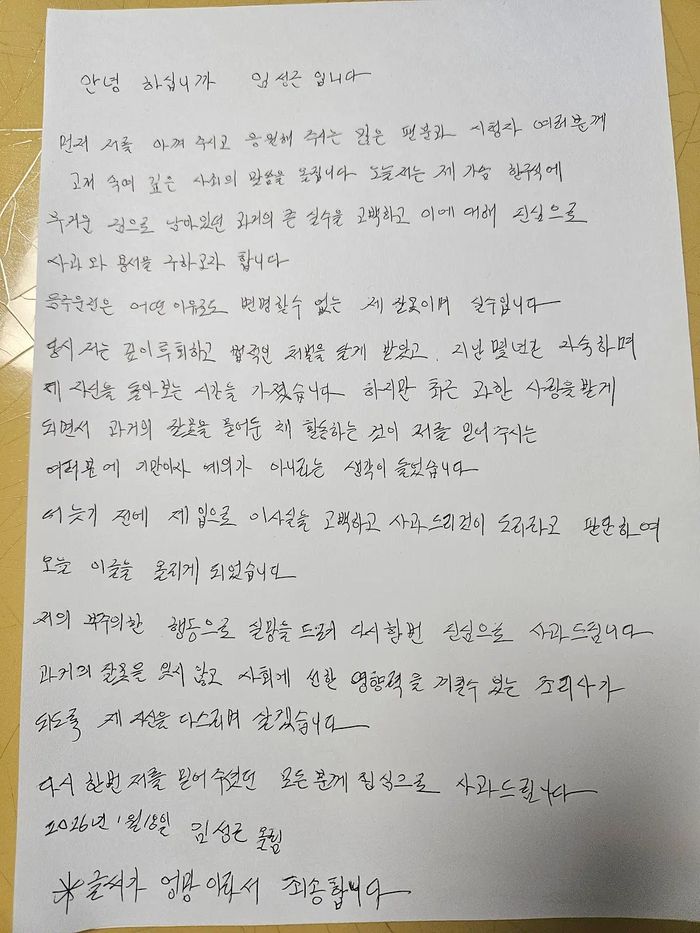 안녕 하십니까 임성근 입니다
먼저 저를 아껴 주시고 응원해 주시는 많은 팬분과 시청자 여러분께
고개 숙여 깊은 사죄의 말씀을 올립니다 오늘 저는 제 가슴 한구석에
무거운 짐으로 남아있던 과거의 큰 실수을 고백하고 이에 대해 진심으로
사과와 용서를 구하고자 합니다
음주운전은 어떤 이유로도 변명할수 없는 제 잘못이며 실수입니다
당시 저는 깊이 후회하고 법적인 처벌을 달게 받았고, 지난 몇년간 자숙하며
제 자신을 돌아 보는 시간을 가졌습니다 하지만 최근 과한 사랑을 받게
되면서 과거의 잘못을 묻어둔 채 활동하는 것이 저를 믿어 주시는
여러분에 기만이자 예의가 아니라는 생각이 들었습니다
더 늦기 전에 제 입으로 이사실을 고백하고 사과드리것이 도리라고 판단하여
오늘 이글을 올리게 되었습니다
저의 부주의한 행동으로 실망을 드려 다시한번 진심으로 사과드립니다
과거의 잘못을 잊지 않고 사회에 선한 영향력을 끼칠수 있는 조리사가
되도록 제 자신을 다스리며 살겠습니다
다시 한번 저를 믿어 주셨던 모든 분께 진심으로 사과드립니다
2026년 1월 18일 임성근 올림
※ 글씨가 엉망 이라서 죄송합니다